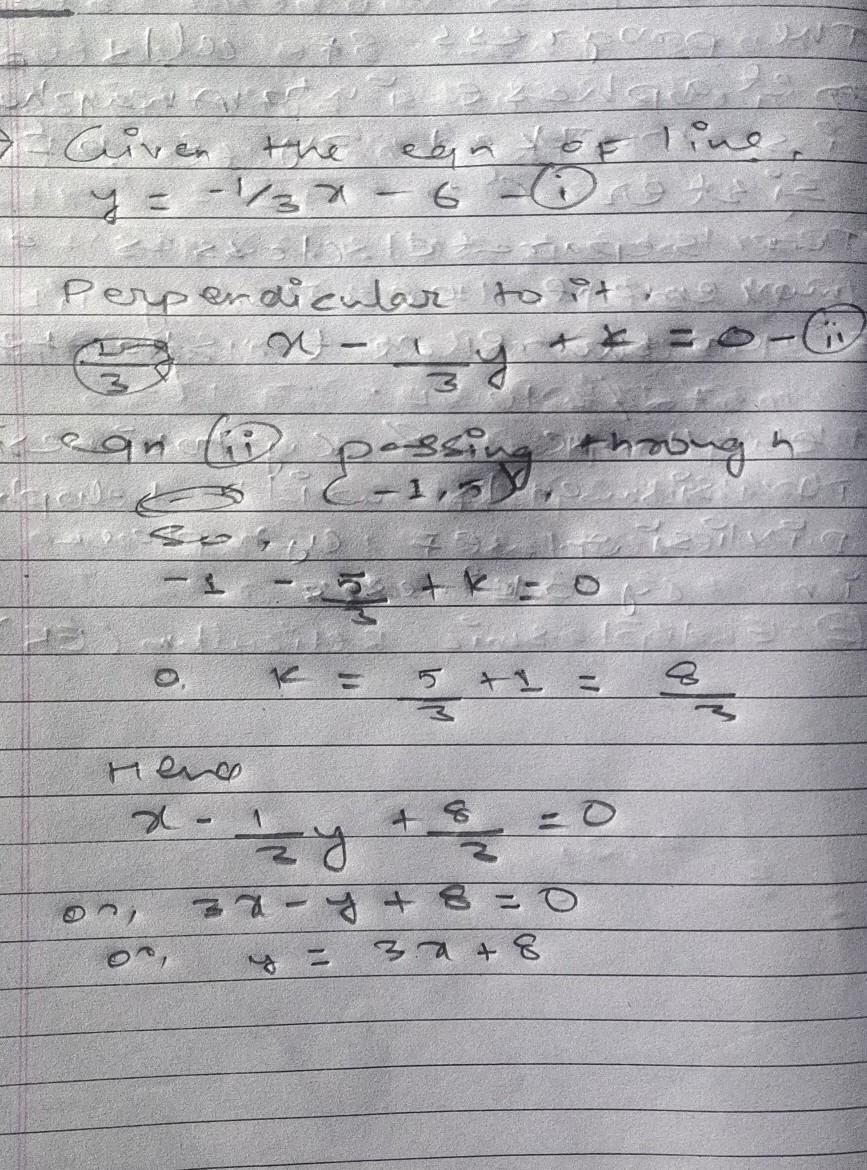 Given the eqn of line,
y = -1/3 x - 6 - (i)
Perpendicular to it.
x - 1/3 y + k = 0 - (ii)
eqn (ii) passing through
(-1, 5).
So,
-1 - 5/3 + k = 0
0, k = 5/3 + 1 = 8/3
Henc
x - 1/3 y + 8/3 = 0
or, 3x - y + 8 = 0
or, y = 3x + 8